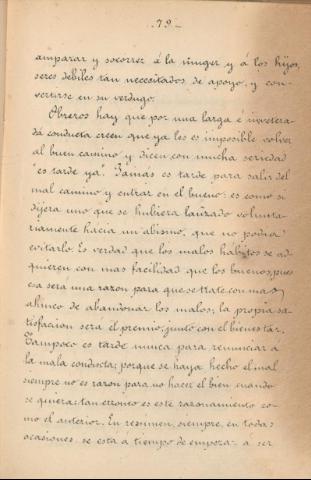 - 79 -
amparar y socorrer á la muger y á los hijos,
seres debiles tan necesitados de apoyo, y con-
vertirse en su verdugo.
Obreros hay que por una larga é invetera-
da conducta creen que ya les es imposible volver
al buen camino y dicen con mucha seriedad
"es tarde ya". Jamás es tarde para salir del
mal camino y entrar en el bueno: es como si
dijera uno que se hubiera lanzado volunta-
riamente hacia un abismo, que no podia
evitarlo. Es verdad que los malos hábitos se ad-
quieren con mas facilidad que los buenos, pues
esa será una razon para que se trate con mas
ahinco de abandonar los malos; la propia sa-
tisfacion será el premio, junto con el bienestar.
Tampoco es tarde nunca para renunciar a
la mala conducta; porque se haya hecho el mal
siempre no es razon para no hacer el bien cuando
se quiera; tan erroneo es este razonamiento co-
mo el anterior. En resumen, siempre, en todas
ocasiones se está a tiempo de empezar a ser